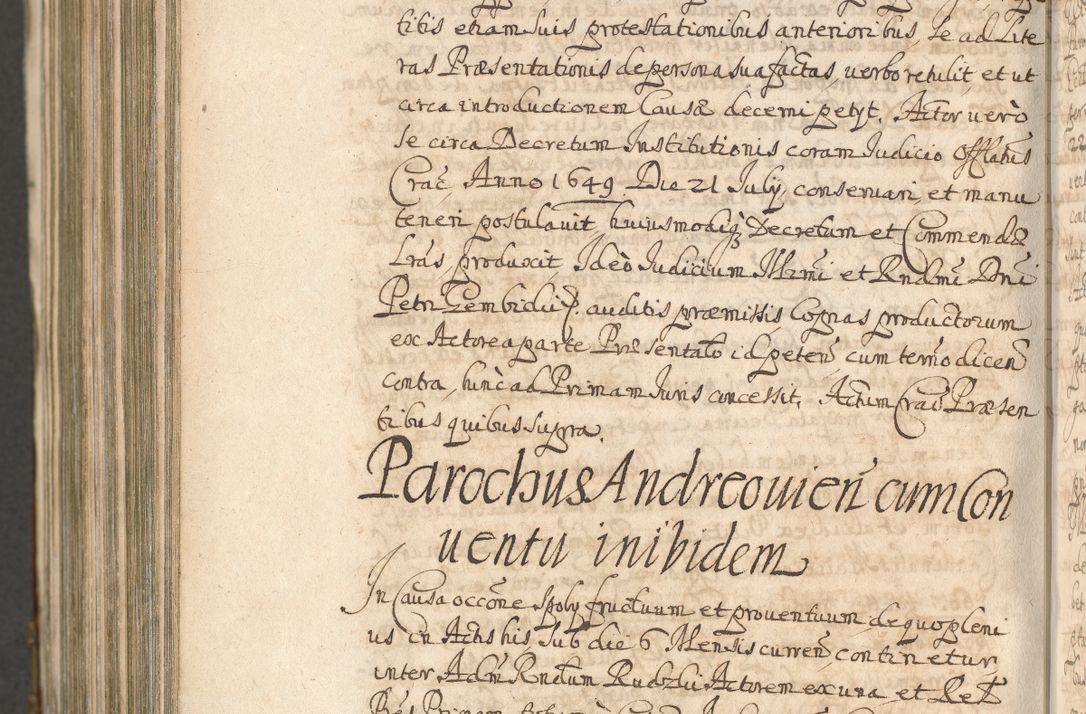 titis etiam suis protestationibus anterioribus, se ad Lite
ras Præsentationis de persona sua factas, uerbo retulit et ut
circa introductionem Causæ decerni petyt. Actor uerò
se circa Decretum Institutionis coram Iudicio Offłatus
Crac̃ Anno 1649 Die 21 July, conseruari, et manu
teneri postulauit, huiusmodiq̃ Decretum et Commendæ
Lr̃as produxit, Ideò Iudicium Illr̃mi et Rndm̃i Dn̄i
Petri Gembicki p. auditis præmissis Copias productorum
ex Actorea parte Præsentato id peten̄ cum termo dicen̄
contra, hinc ad Primam Iuris concessit. Actum Crac̃ Præsen
tibus quibus supra.
Parochus Andreouien̄ cum Con
uentu inibidem
In Causa occõne Spoly fructuum et prouentuum de quo pleni
us in Actis his, sub die 6 Mensis curren̄ continetur
inter Adm̃ Rndum Rudzki Actorem ex una, et Rel̃